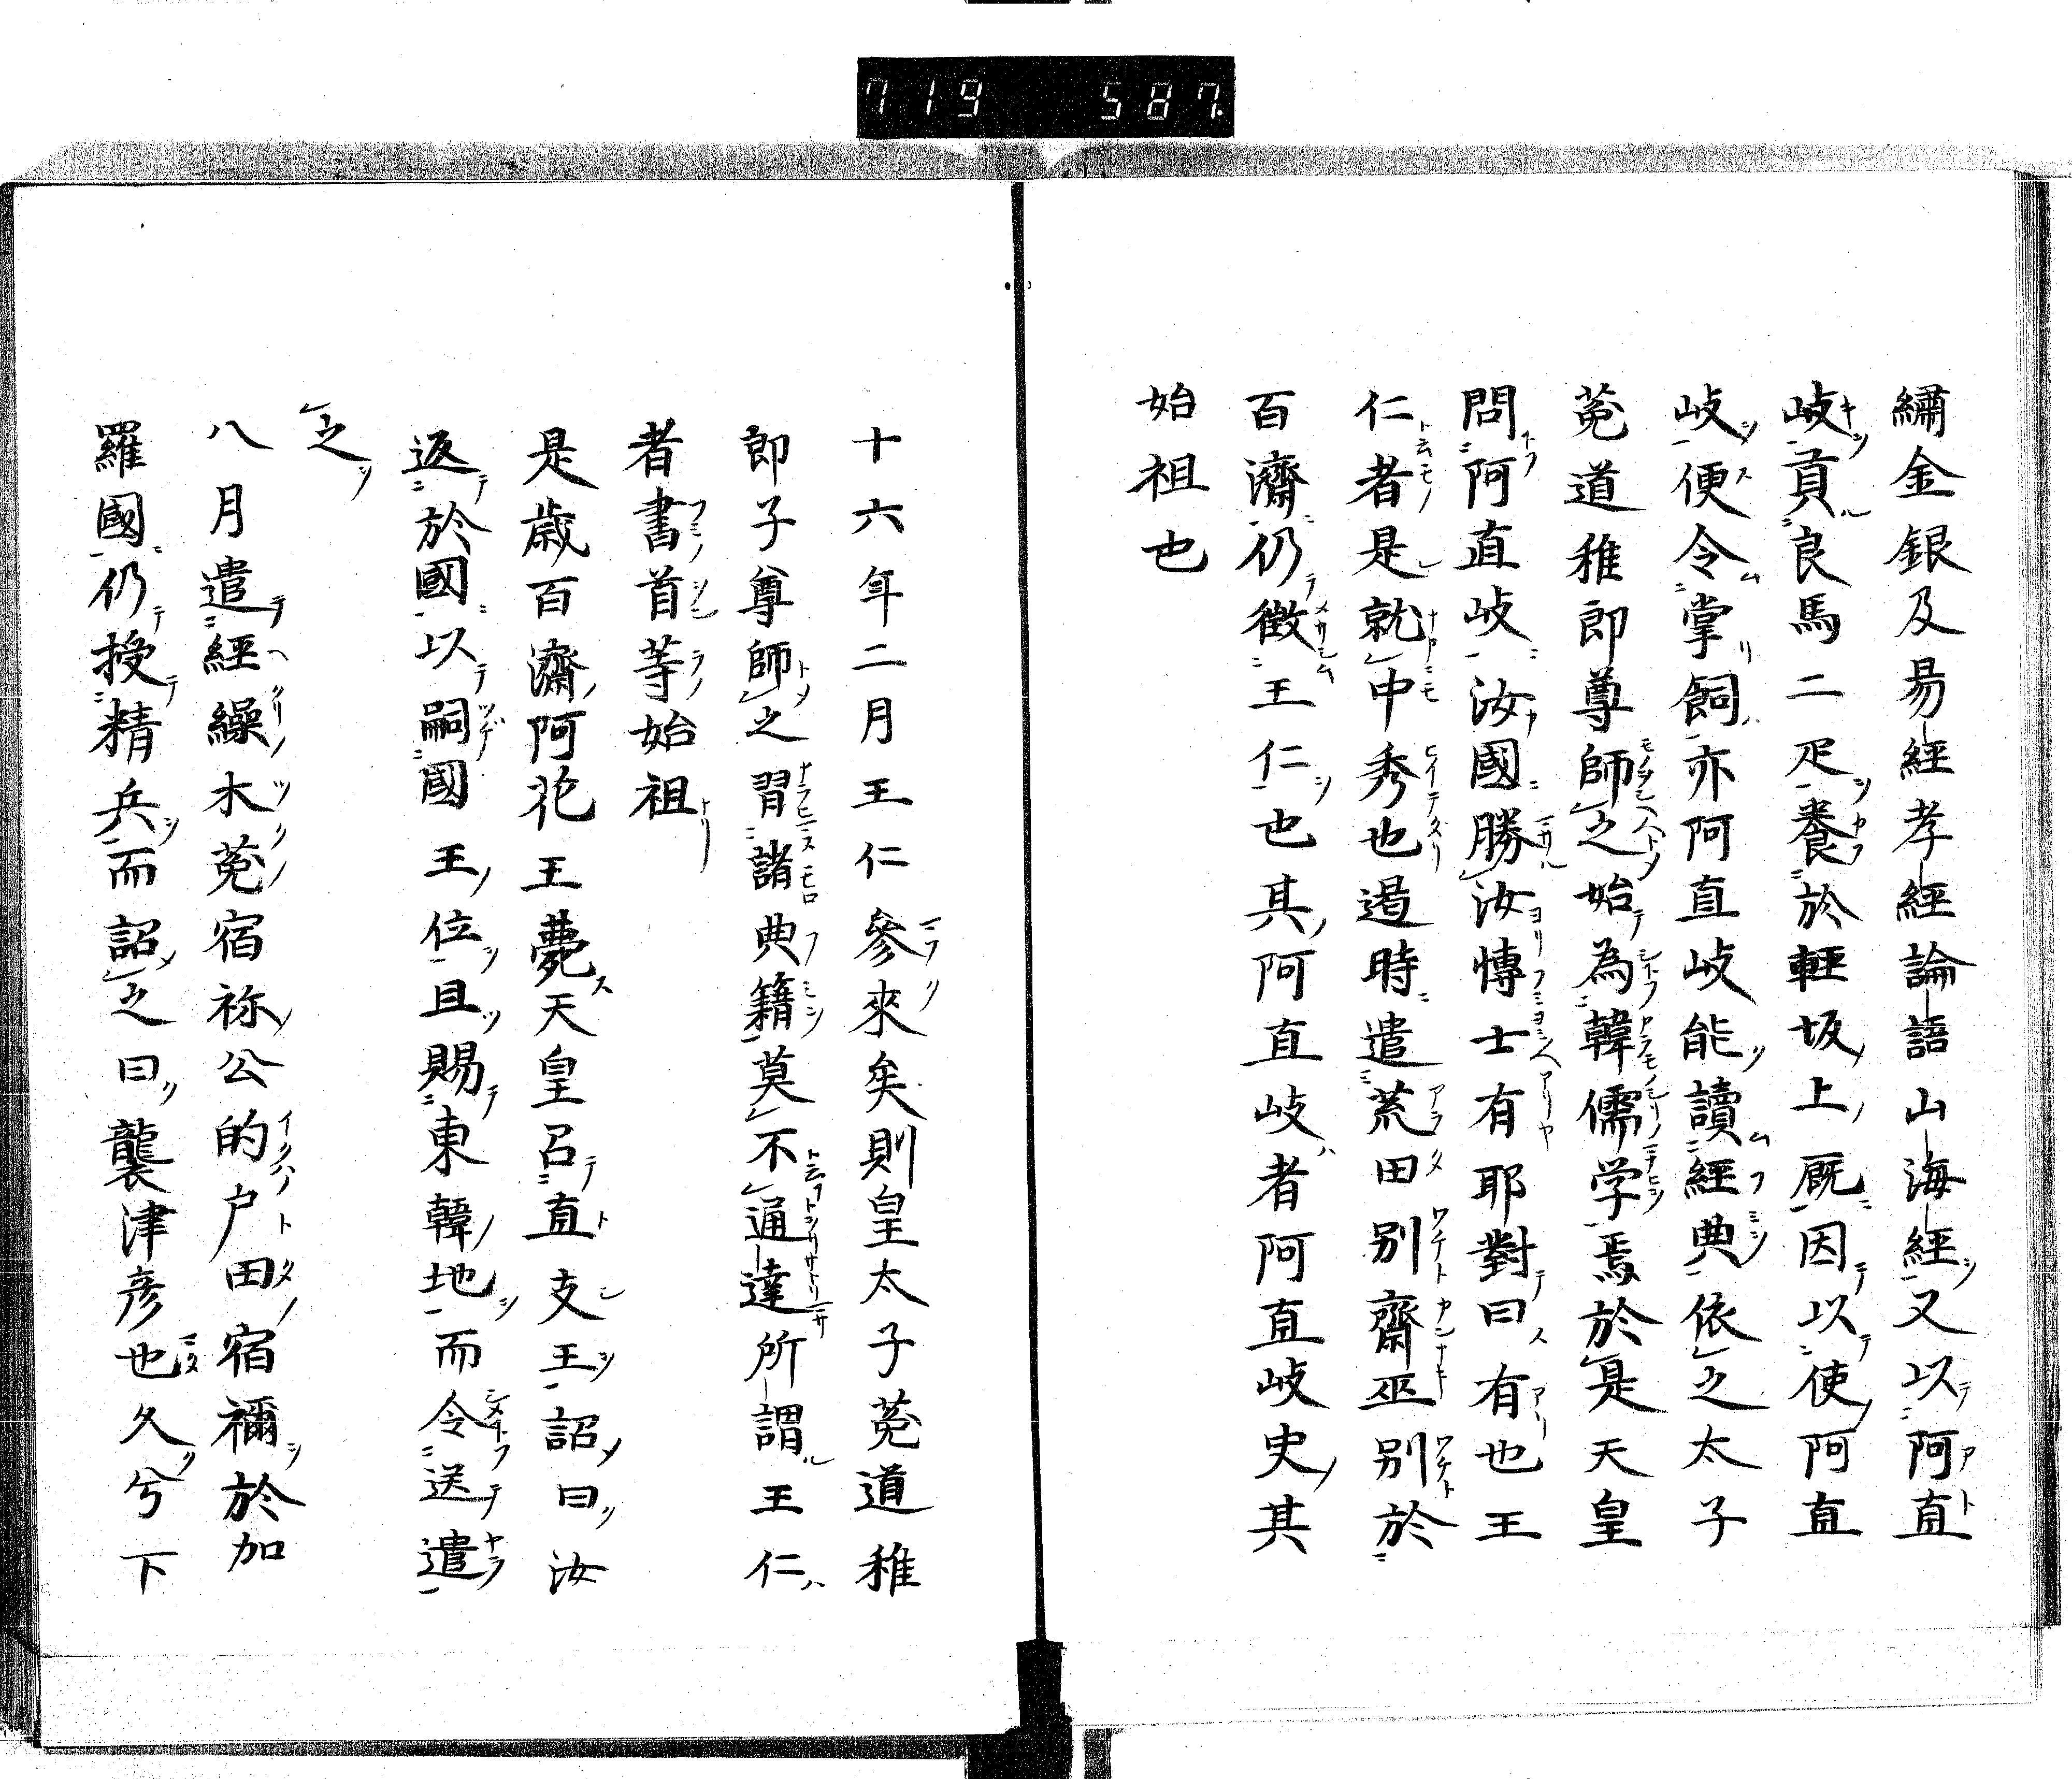 719 587
繡金銀及易經孝經論語山海經又以阿直
岐貢良馬二疋養於輕坂上厩因以使阿直
岐便令掌飼亦阿直岐能讀經典依之太子
菟道稚即尊師之始為韓儒学焉於是天皇
問阿直岐汝國勝汝博士有耶對曰有也王
仁者是就中秀也遏時遣荒田別齋巫別於
百濟仍徴王仁也其阿直岐者阿直岐史其
始祖也
十六年二月王仁參來矣則皇太子菟道稚
即子尊師之習諸典籍莫不通達所謂王仁
者書首等始祖
是歳百濟阿花王薨天皇召直支王詔曰汝
返於國以嗣國王位且賜東韓地而令送遣
之
八月遣經繰木菟宿祢公的戸田宿禰於加
羅國仍授精兵而詔之曰襲津彦也久兮下